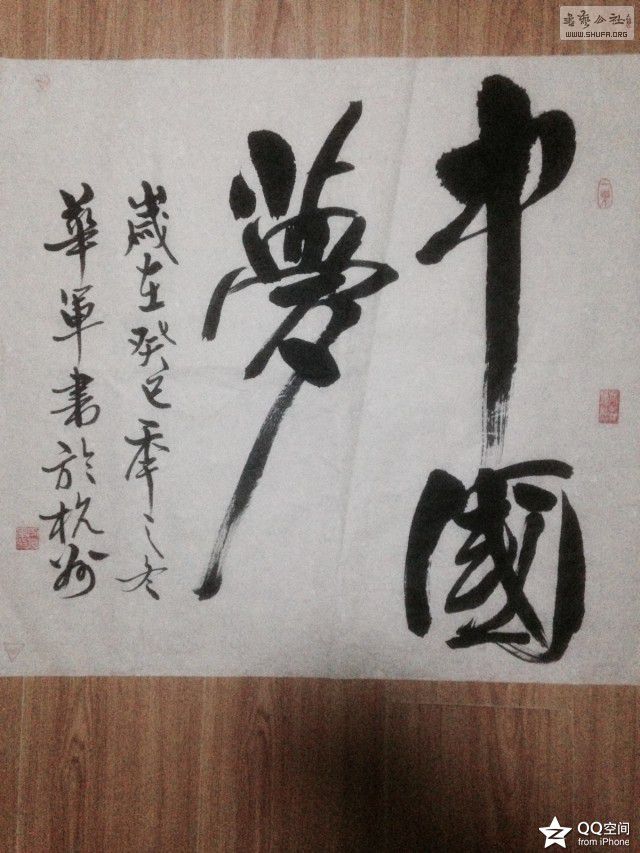 中國
夢
歲在癸巳季之冬
華軍書於杭州
書藝公社
WWW.SHUFA.ORG
QQ空间
from iPhone